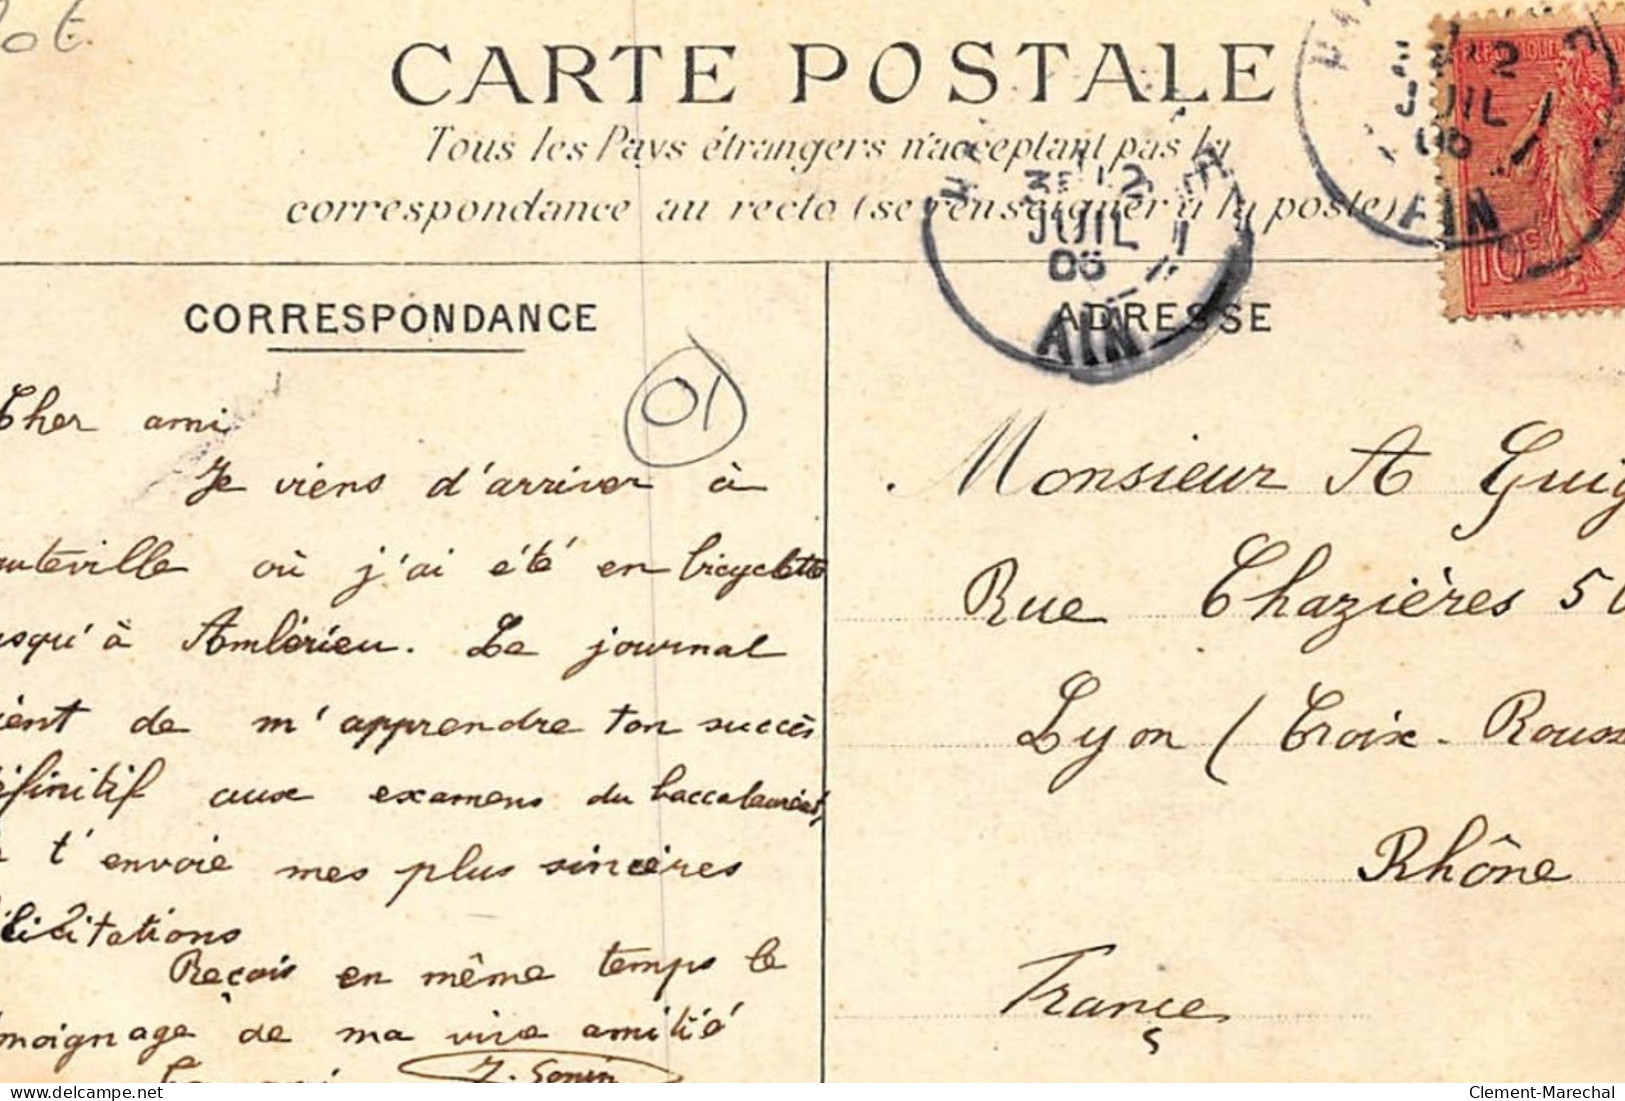 CARTE POSTALE
Tous les Pays étrangers n'acceptant pas la
correspondance au recto (se renseigner à la poste)
2
JUIL
06
AIN
12
JUIL
06
AIN
10c
CORRESPONDANCE
ADRESSE
01
Cher ami
Je viens d'arriver à
auteville où j'ai été en bicyclette
usqu'à Ambérieu. Le journal
ient de m'apprendre ton succès
éfinitif aux examens du baccalauréat,
t'envoie mes plus sincères
licitations
Reçois en même temps le
moignage de ma vive amitié
J. Gonin
Monsieur A Guig
Rue Chazières 50
Lyon (Croix-Rouss
Rhône
France
Clement-Marechal